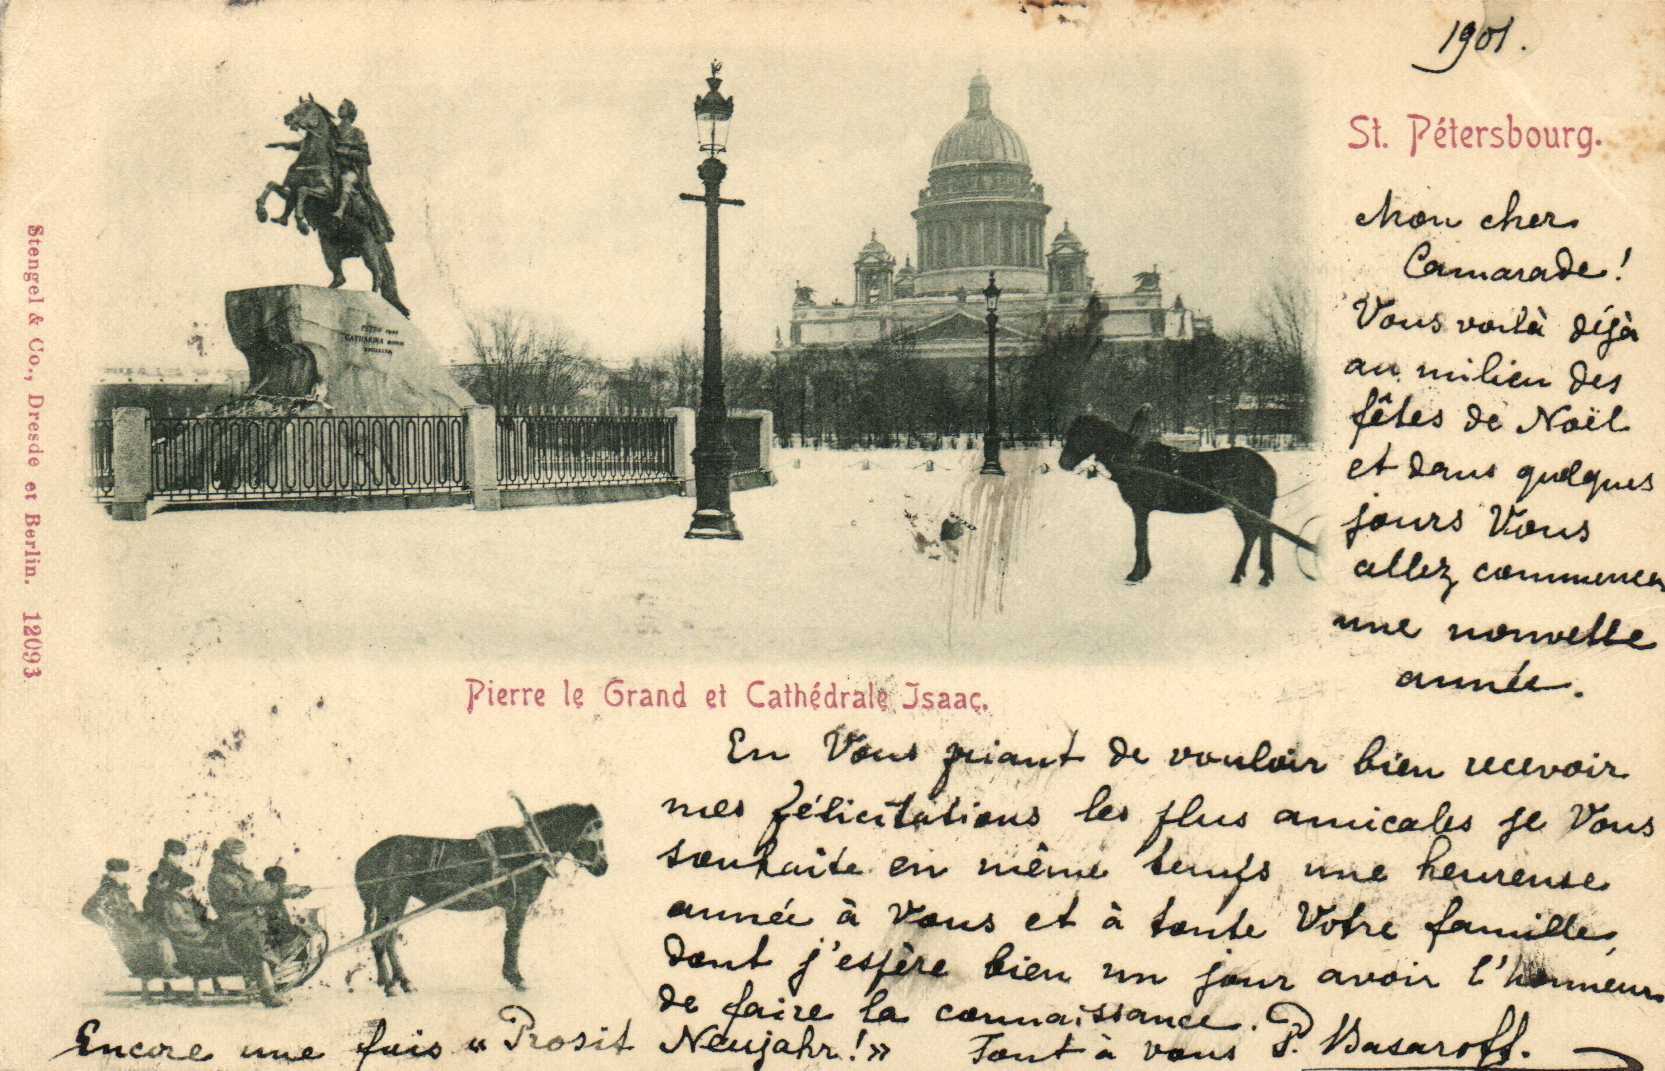 1901.
St. Pétersbourg.
Mon cher
Camarade!
Vous voilà déjà
au milieu des
fêtes de Noël
et dans quelques
jours Vous
allez commencer
une nouvelle
année.
PETRO primo
CATHARINA secunda
Stengel & Co., Dresde et Berlin. 12093
Pierre le Grand et Cathédrale Isaac.
En Vous priant de vouloir bien recevoir
mes félicitations les plus amicales je Vous
souhaite en même temps une heureuse
année à Vous et à toute Votre famille,
dont j'espère bien un jour avoir l'honneur
de faire la connaissance.
Encore une fois « Prosit Neujahr! » Tout à vous P. Basaroff.